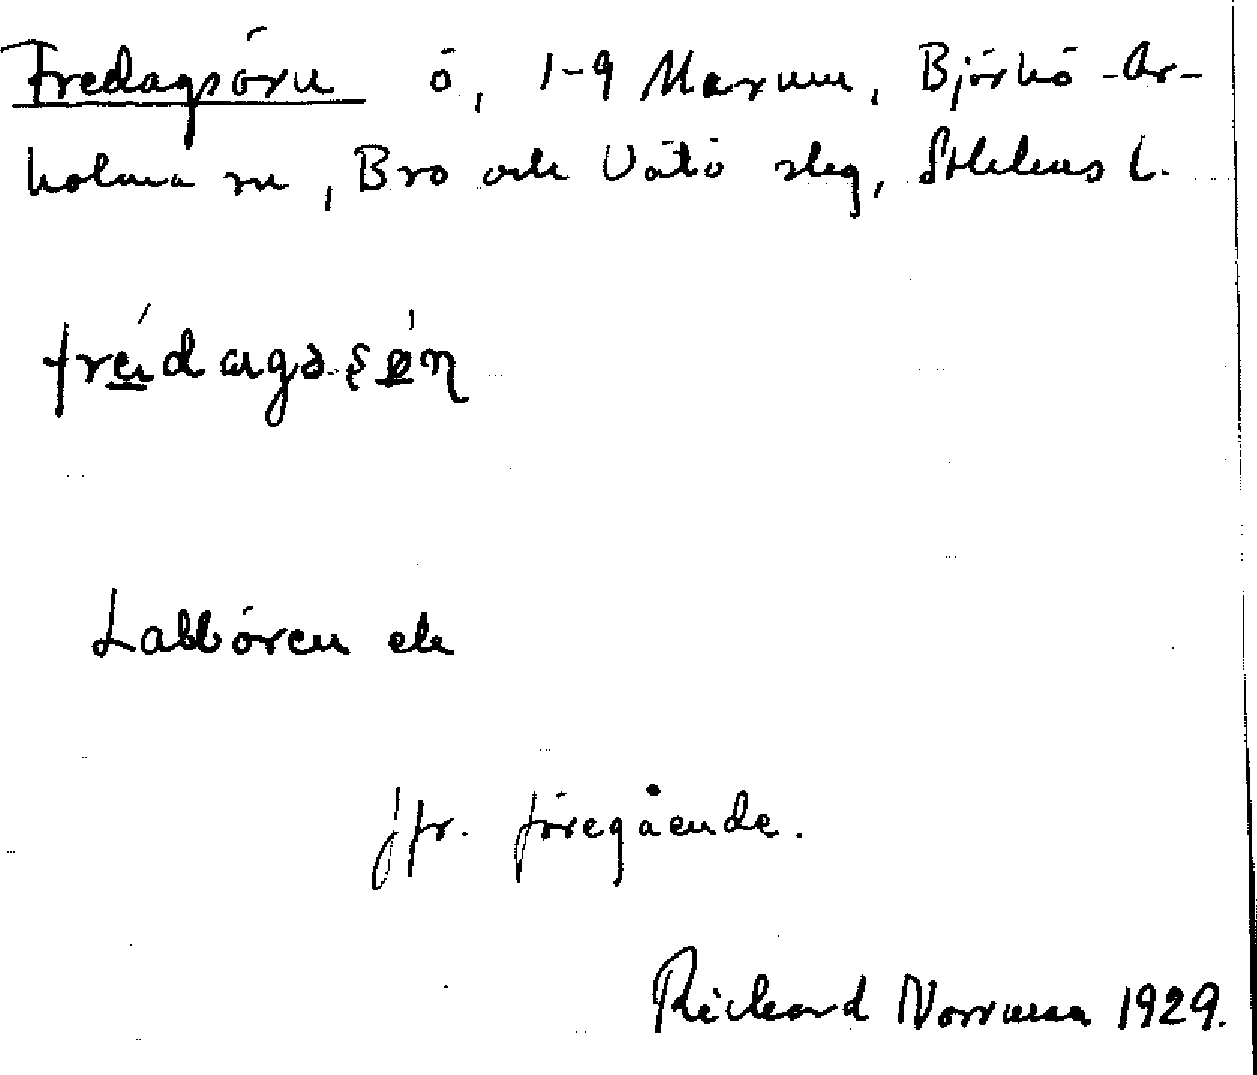 Fredagsörn ö, 1-9 Marum, Björkö-Ar-
holma sn, Bro och Vätö slg, Sthlms l.
fréidagsa-şø̀ɳ
Labbören ek
jfr. föregående.
Rickard Norrman 1929.